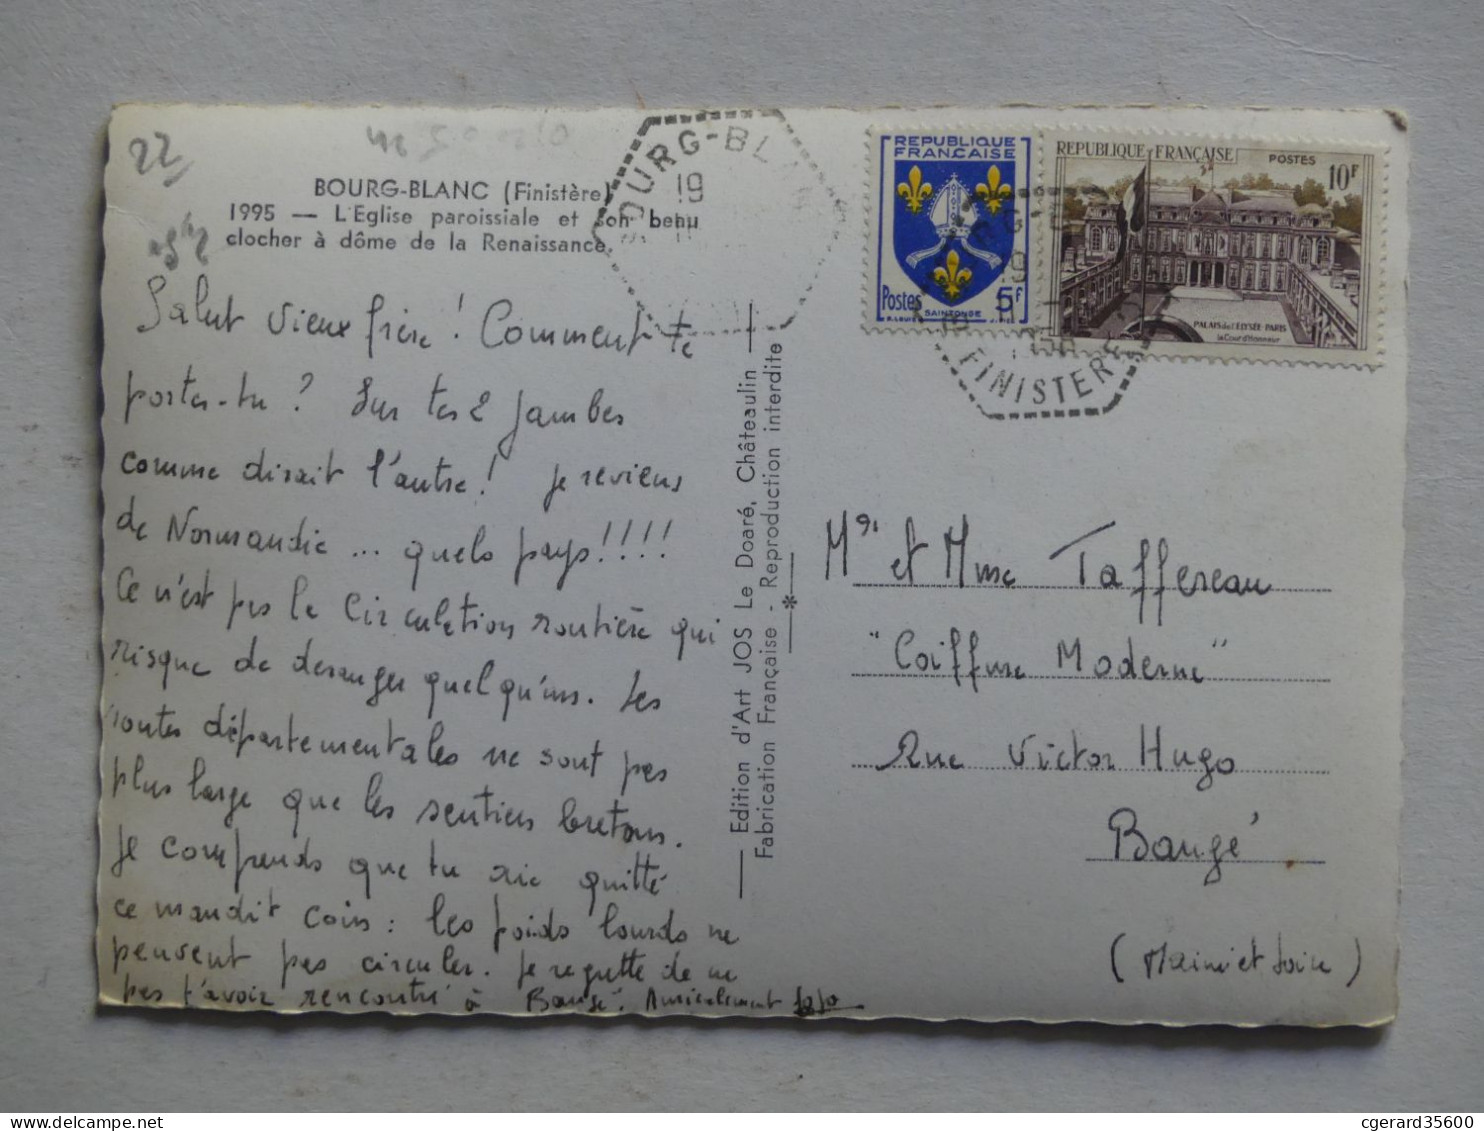 22
BOURG-BLANC (Finistère)
1995 — L'Eglise paroissiale et son beau
clocher à dôme de la Renaissance.
Salut vieux frère ! Comment te
portes-tu ? Sur tes 2 jambes
comme dirait l'autre ! Je reviens
de Normandie ... quels pays !!!!
Ce n'est pas la circulation routière qui
risque de déranger quelqu'uns. Les
routes départementales ne sont pas
plus large que les sentiers bretons.
Je comprends que tu aie quitté
ce maudit coin : les poids lourds ne
peuvent pas circuler. Je regrette de ne
pas t'avoir rencontré à Baugé. Amicalement Jojo
Edition d'Art JOS Le Doaré, Châteaulin
Fabrication Française - Reproduction interdite
*
BOURG-BLANC
19
REPUBLIQUE
FRANÇAISE
Postes 5F
SAINTONGE
REPUBLIQUE FRANÇAISE POSTES 10F
PALAIS de l'ÉLYSÉE-PARIS
la Cour d'Honneur
19
FINISTERE
Mr et Mme Taffereau
"Coiffure Moderne"
Rue Victor Hugo
Baugé
(Maine et Loire)
cgerard35600